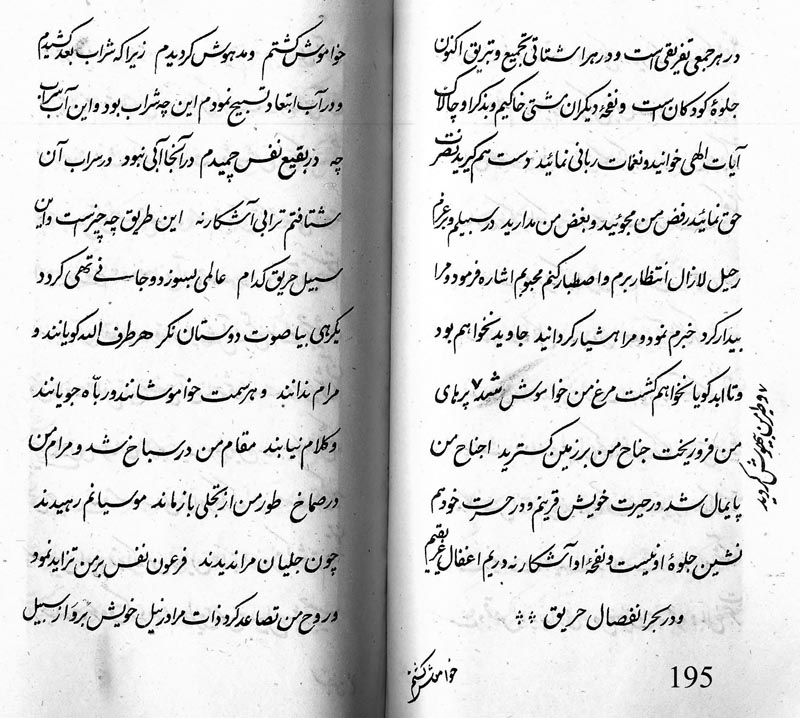 در هر جمعی تفریقی است و در هر اشتاتی تجمیع و تبریق اکنون
جلوهٔ کودکان است و نفحهٔ دیگران مشتی خاکیم و بذکر او چالاک
آیات الهی خوانید و نغمات ربانی نمائید دست هم گیرید نصرت
حق نمائید رفض من مجوئید و بغض من مدارید در سبیلم و بر عزم
رحیل لازال انتظار برم و اصطبار کنم محبوبم اشاره فرمود و مرا
بیدار کرد خبرم نمود و مرا هشیار گردانید جاوید نخواهم بود
و تا ابد گویا نخواهم گشت مرغ من خواموش شد ۷ پرهای
۷ و طیر من بیهوش گردید
من فرو ریخت جناح من بر زمین گسترید اجناح من
پایمال شد در حیرت خویش قرینم و در حسرت خود هم
نشین جلوهٔ او نیست و نفحهٔ او آشکار نه در یم اغفال غریقیم
و در بحر انفصال حریق
195
خواموش گشتم
خواموش گشتم و مدهوش گردیدم زیرا که شراب بعد کشیدم
و در آب ابتعاد تسبیح نمودم این چه شراب بود و این آب سراب
چه در بقیع نفس چمیدم در آنجا آبی نبود در سراب آن
شتافتم ترابی آشکار نه این طریق چه چیز است و این
سبیل حریق کدام عالمی بسوزد و جانی تهی گردد
یکرهی بیا صوت دوستان نگر هر طرف الله گویانند و
مرام ندانند و هر سمت خواموشانند و ربّاه جویانند
و کلام نیابند مقام من در سباخ شد و مرام من
در صماخ طور من از تجلی باز ماند موسیانم رهیدند
چون جلیان مرا ندیدند فرعون نفس بر من تزاید نمود
و روح من تصاعد کرد ذات مرا در نیل خویش برد و از سبیل